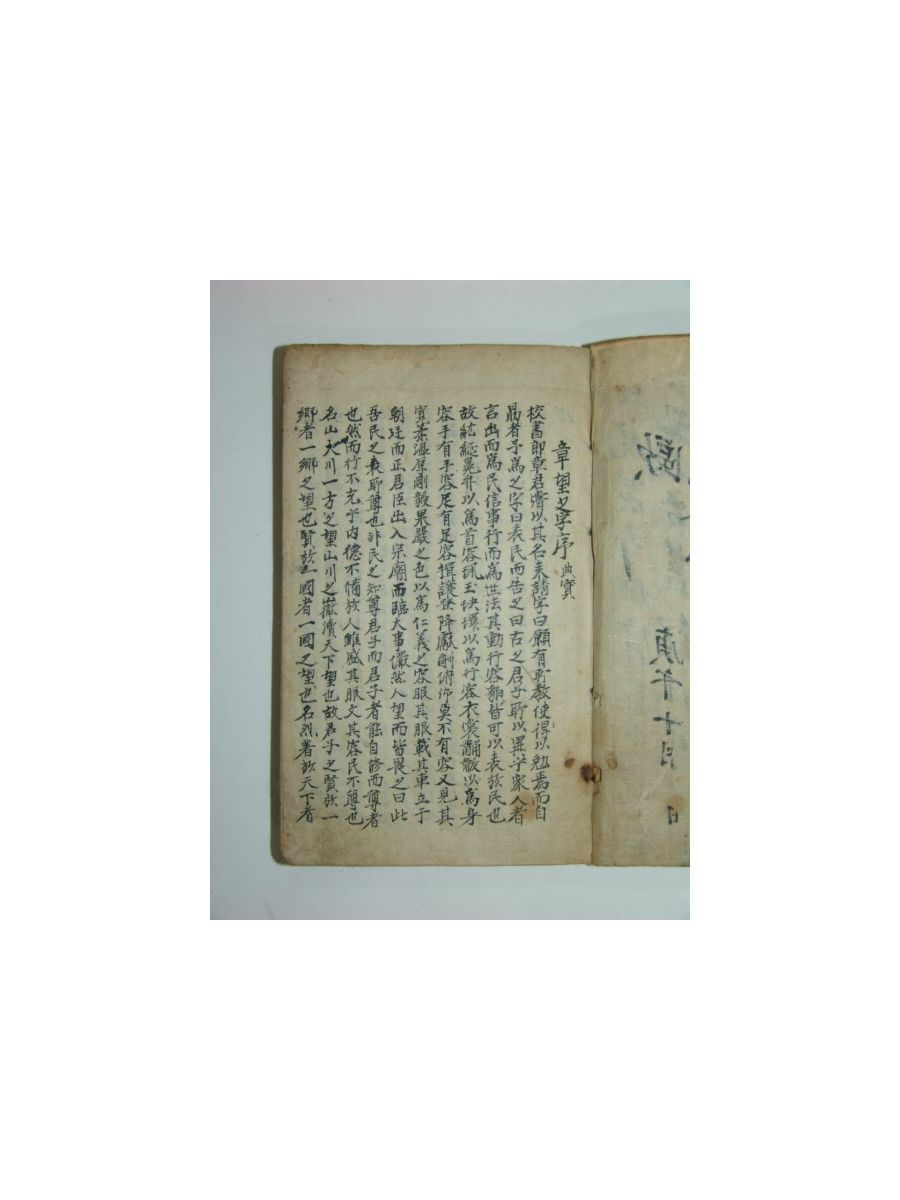 庚午十月 日
章望之字序 典實
校書郎章君嘗以其名來請字曰願有所教使得以勉焉而自
勗者予爲之字曰表民而告之曰古之君子所以異乎衆人者
言出而爲民信事行而爲世法其動行容貌皆可以表於民也
故紘綖冕弁以爲首容珮玉玦環以爲行容衣裳黼黻以爲身
容手有手容足有足容揖讓登降獻酬俯仰莫不有容又見其
寬柔溫厚剛毅果嚴之色以爲仁義之容服其服載其車立于
朝廷而正君臣出入宗廟而臨大事儼然人望而皆畏之曰此
吾民之表耶尊也非民之知尊君子而君子者能自修而尊者
也然而行不充乎內德不備於人雖盛其服文其容民不尊也
名山大川一方之望山川之嶽瀆天下望也故君子之賢於一
鄉者一鄉之望也賢於一國者一國之望也名烈著於天下者